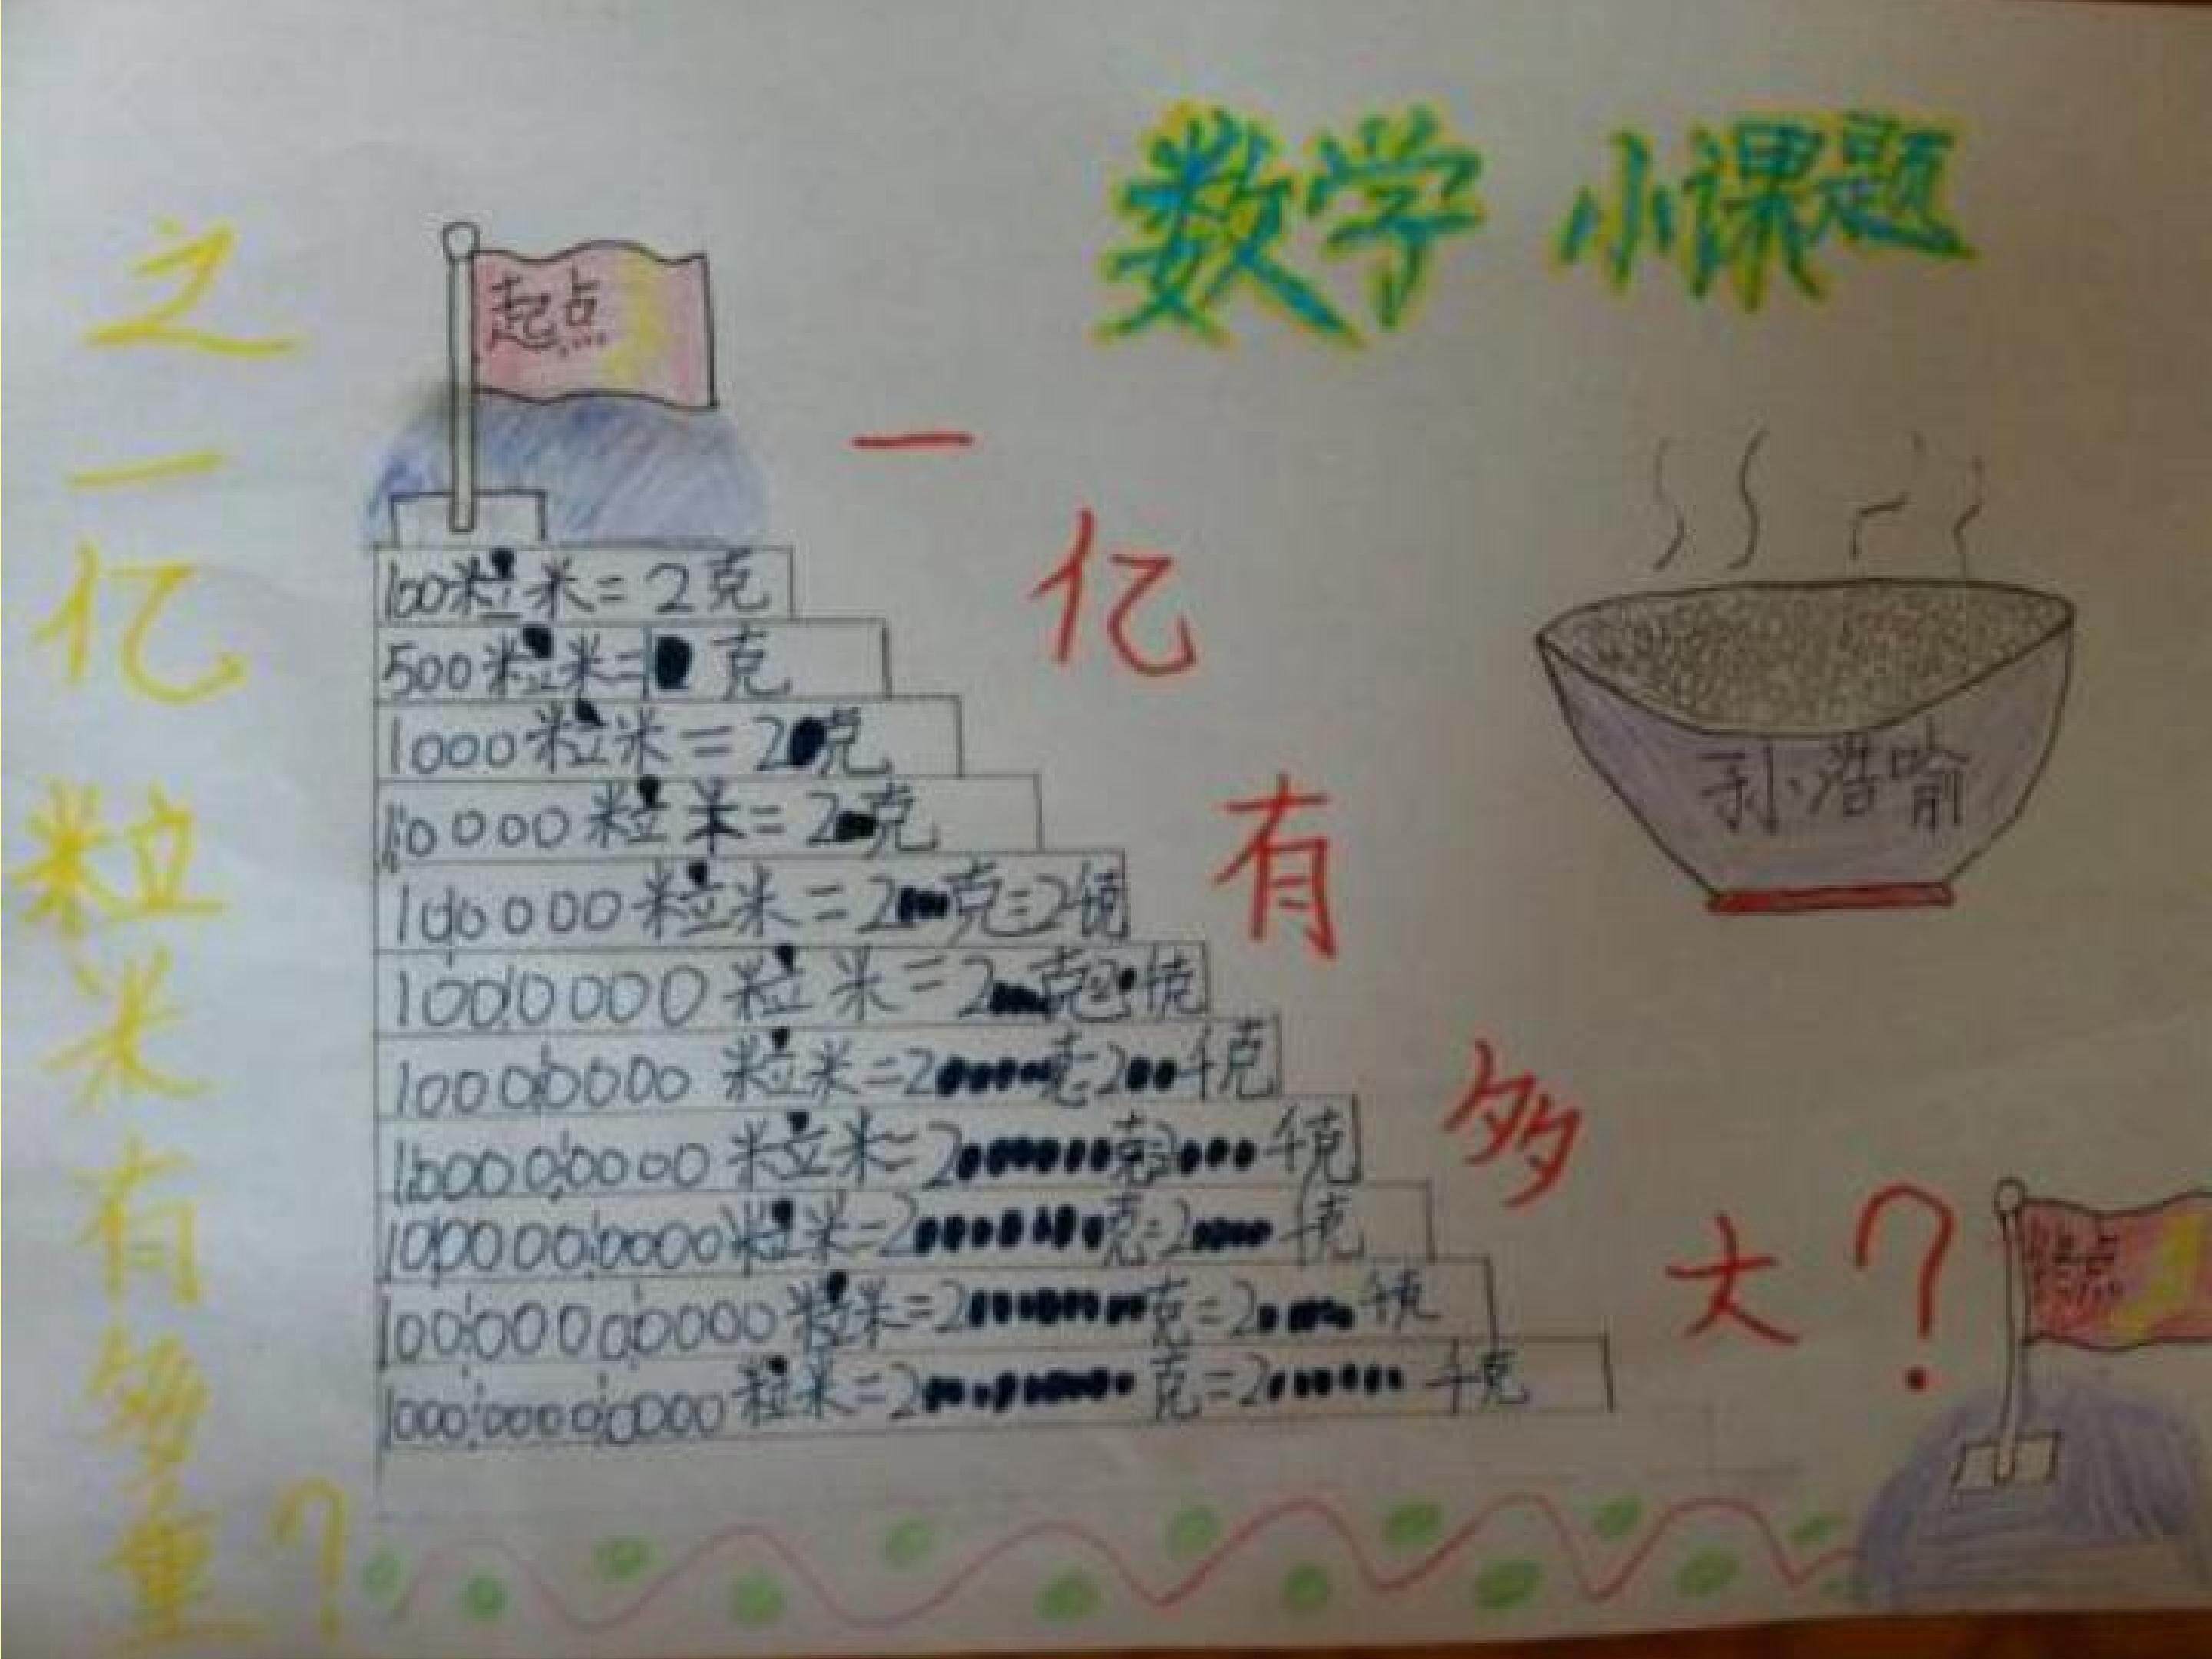 数学 小课题
之一亿粒米有多重?
起点
一亿有多大?
100粒米=2克
500粒米=10克
1000粒米=20克
10000粒米=200克
100000粒米=2000克=2千克
1000000粒米=20000克=20千克
10000000粒米=200000克=200千克
100000000粒米=2 克=2000千克
1000000000粒米=2 克=2 千克
10000000000粒米=2 克=2 千克
100000000000粒米=2 克=2 千克
孙浩喻